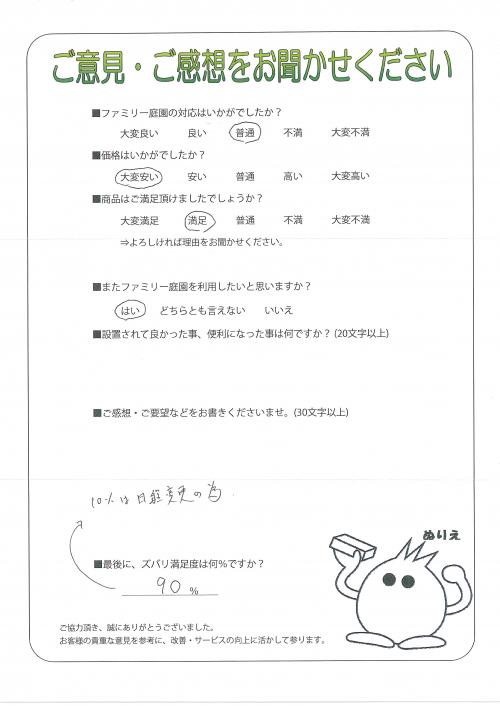 ご意見・ご感想をお聞かせください
■ファミリー庭園の対応はいかがでしたか？
大変良い 良い 普通 不満 大変不満
■価格はいかがでしたか？
大変安い 安い 普通 高い 大変高い
■商品はご満足頂けましたでしょうか？
大変満足 満足 普通 不満 大変不満
⇒よろしければ理由をお聞かせください。
■またファミリー庭園を利用したいと思いますか？
はい どちらとも言えない いいえ
■設置されて良かった事、便利になった事は何ですか？(20文字以上)
■ご感想・ご要望などをお書きくださいませ。(30文字以上)
10%は日程変更の為
ぬりえ
■最後に、ズバリ満足度は何%ですか？
90 %
ご協力頂き、誠にありがとうございました。
お客様の貴重な意見を参考に、改善・サービスの向上に活かして参ります。